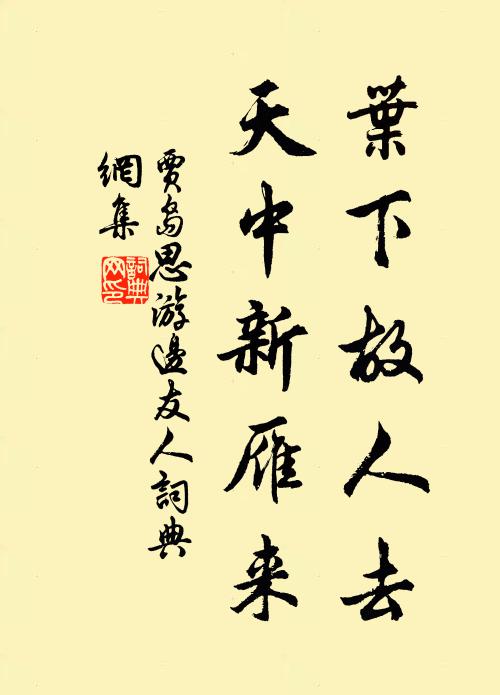 葉下故人去
天中新雁来
賈島思游邊友人詞典
網集
詞典網印